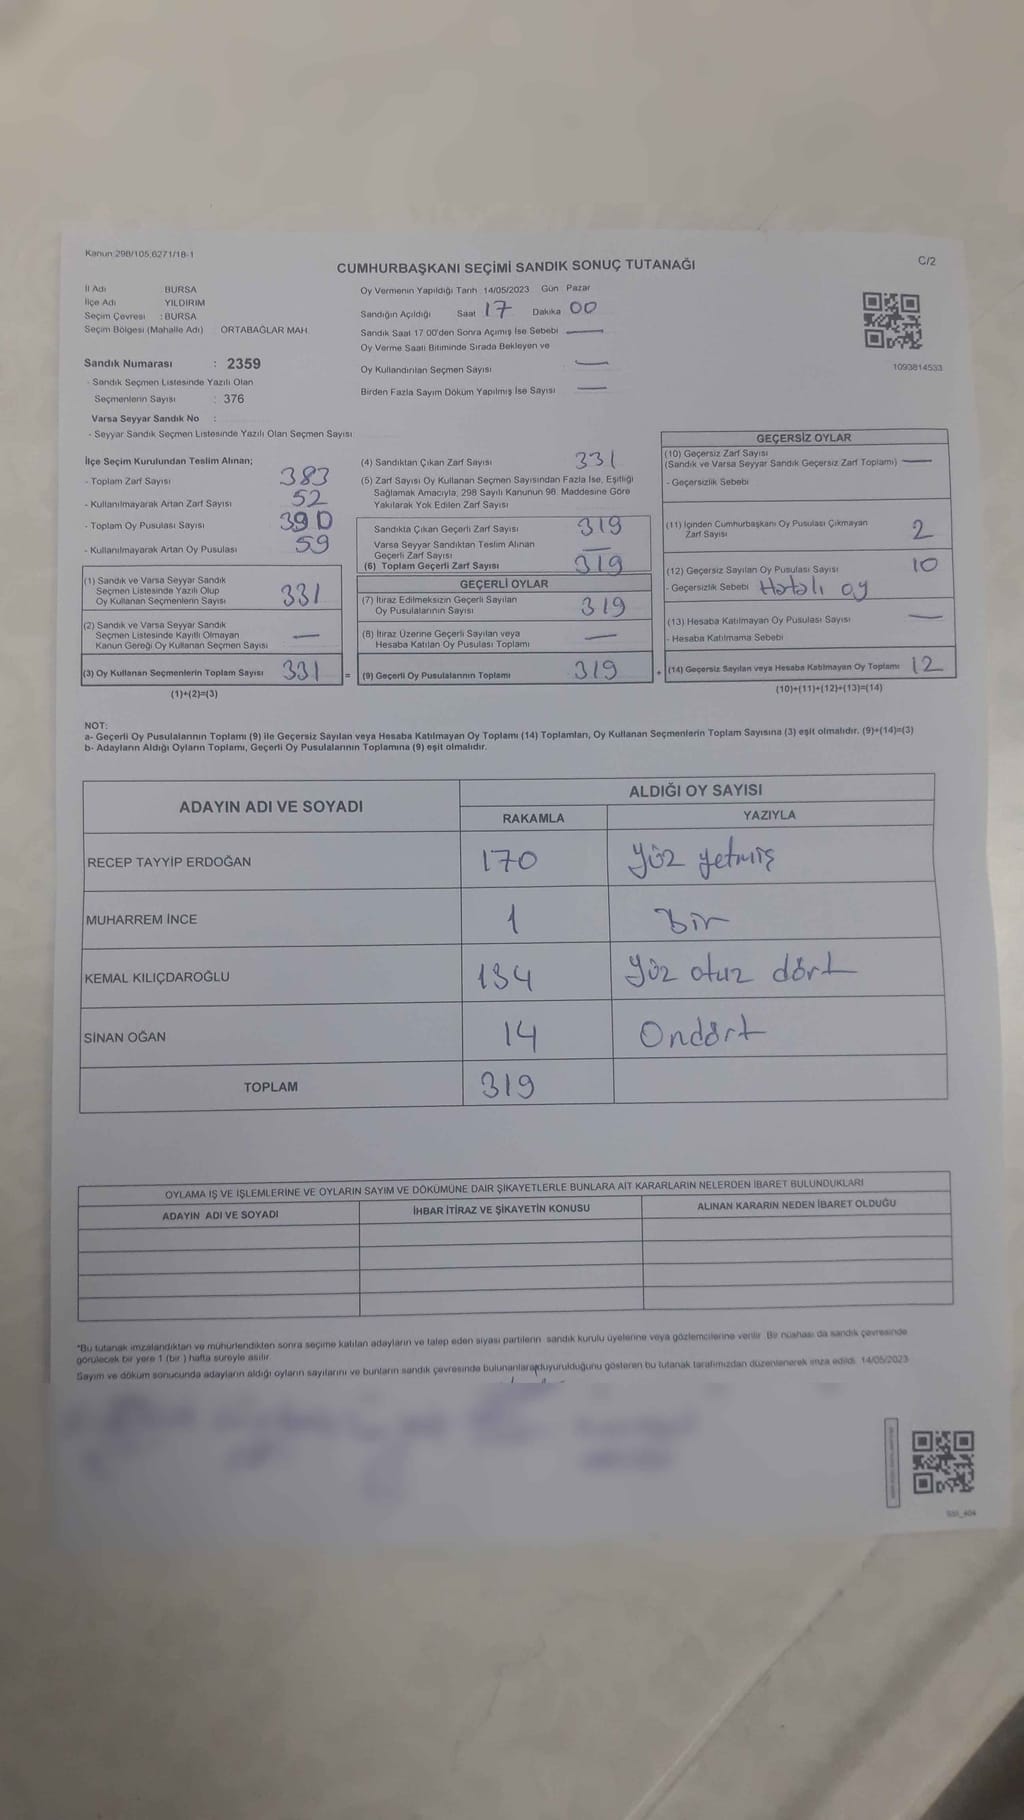 Kanun:298/105,6271/18-1
C/2
CUMHURBAŞKANI SEÇİMİ SANDIK SONUÇ TUTANAĞI
İl Adı BURSA
İlçe Adı YILDIRIM
Seçim Çevresi : BURSA
Seçim Bölgesi (Mahalle Adı) : ORTABAĞLAR MAH
Sandık Numarası : 2359
- Sandık Seçmen Listesinde Yazılı Olan
Seçmenlerin Sayısı : 376
Varsa Seyyar Sandık No :
- Seyyar Sandık Seçmen Listesinde Yazılı Olan Seçmen Sayısı:
Oy Vermenin Yapıldığı Tarih 14/05/2023 Gün Pazar
Sandığın Açıldığı Saat 17 Dakika 00
Sandık Saat 17 00'den Sonra Açımış İse Sebebi —
Oy Verme Saati Bitiminde Sırada Bekleyen ve
Oy Kullandırılan Seçmen Sayısı : —
Birden Fazla Sayım Döküm Yapılmış İse Sayısı —
1093814533
İlçe Seçim Kurulundan Teslim Alınan;
- Toplam Zarf Sayısı 383
- Kullanılmayarak Artan Zarf Sayısı 52
- Toplam Oy Pusulası Sayısı 390
- Kullanılmayarak Artan Oy Pusulası 59
(1) Sandık ve Varsa Seyyar Sandık
Seçmen Listesinde Yazılı Olup
Oy Kullanan Seçmenlerin Sayısı 331
(2) Sandık ve Varsa Seyyar Sandık
Seçmen Listesinde Kayıtlı Olmayan
Kanun Gereği Oy Kullanan Seçmen Sayısı —
(3) Oy Kullanan Seçmenlerin Toplam Sayısı 331 =
(1)+(2)=(3)
(4) Sandıktan Çıkan Zarf Sayısı 331
(5) Zarf Sayısı Oy Kullanan Seçmen Sayısından Fazla İse, Eşitliği
Sağlamak Amacıyla; 298 Sayılı Kanunun 98. Maddesine Göre
Yakılarak Yok Edilen Zarf Sayısı
Sandıkta Çıkan Geçerli Zarf Sayısı 319
Varsa Seyyar Sandıktan Teslim Alınan
Geçerli Zarf Sayısı —
(6) Toplam Geçerli Zarf Sayısı 319
GEÇERLİ OYLAR
(7) İtiraz Edilmeksizin Geçerli Sayılan
Oy Pusulalarının Sayısı 319
(8) İtiraz Üzerine Geçerli Sayılan veya
Hesaba Katılan Oy Pusulası Toplamı —
(9) Geçerli Oy Pusulalarının Toplamı 319 +
GEÇERSİZ OYLAR
(10) Geçersiz Zarf Sayısı
(Sandık ve Varsa Seyyar Sandık Geçersiz Zarf Toplamı) —
- Geçersizlik Sebebi
(11) İçinden Cumhurbaşkanı Oy Pusulası Çıkmayan
Zarf Sayısı 2
(12) Geçersiz Sayılan Oy Pusulası Sayısı 10
- Geçersizlik Sebebi Hatalı oy
(13) Hesaba Katılmayan Oy Pusulası Sayısı —
- Hesaba Katılmama Sebebi
(14) Geçersiz Sayılan veya Hesaba Katılmayan Oy Toplamı 12
(10)+(11)+(12)+(13)=(14)
NOT:
a- Geçerli Oy Pusulalarının Toplamı (9) ile Geçersiz Sayılan veya Hesaba Katılmayan Oy Toplamı (14) Toplamları, Oy Kullanan Seçmenlerin Toplam Sayısına (3) eşit olmalıdır. (9)+(14)=(3)
b- Adayların Aldığı Oyların Toplamı, Geçerli Oy Pusulalarının Toplamına (9) eşit olmalıdır.
ADAYIN ADI VE SOYADI ALDIĞI OY SAYISI
RAKAMLA YAZIYLA
RECEP TAYYİP ERDOĞAN 170 Yüz yetmiş
MUHARREM İNCE 1 Bir
KEMAL KILIÇDAROĞLU 134 Yüz otuz dört
SİNAN OĞAN 14 Ondört
TOPLAM 319
OYLAMA İŞ VE İŞLEMLERİNE VE OYLARIN SAYIM VE DÖKÜMÜNE DAİR ŞİKAYETLERLE BUNLARA AİT KARARLARIN NELERDEN İBARET BULUNDUKLARI
ADAYIN ADI VE SOYADI İHBAR İTİRAZ VE ŞİKAYETİN KONUSU ALINAN KARARIN NEDEN İBARET OLDUĞU
*Bu tutanak imzalandıktan ve mühürlendikten sonra seçime katılan adayların ve talep eden siyasi partilerin sandık kurulu üyelerine veya gözlemcilerine verilir. Bir nüshası da sandık çevresinde
görülecek bir yere 1 (bir ) hafta süreyle asılır.
Sayım ve döküm sonucunda adayların aldığı oyların sayılarını ve bunların sandık çevresinde bulunanlara duyurulduğunu gösteren bu tutanak tarafımızdan düzenlenerek imza edildi. 14/05/2023